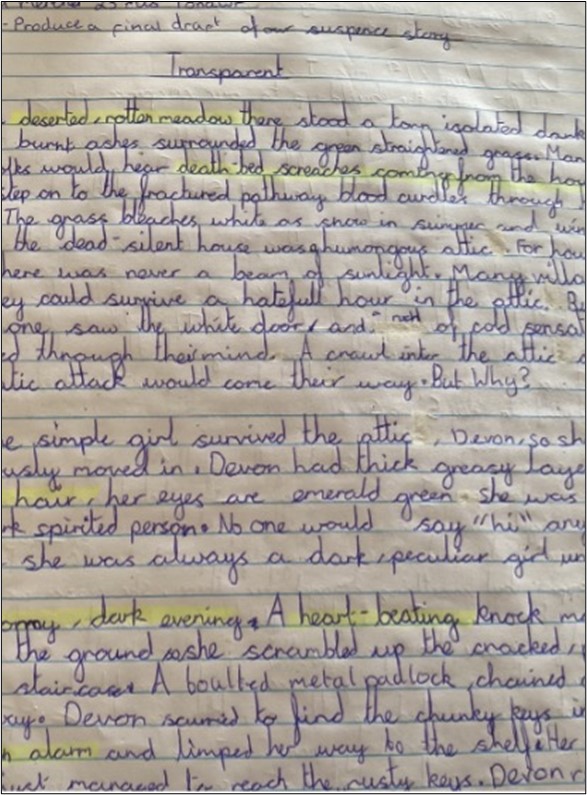 -Produce a final dract of our suspence story
Transparent
deserted, rotten meadow there stood a torn isolated dark
burnt ashes surrounded the green straightened grass. Man
lks would hear death-bed screaches coming from the hou
tep on to the fractured pathway blood curdles through
The grass bleaches white as snow in summer and win
the dead-silent house was a humongous attic. For hou
here was never a beam of sunlight. Many villa
ey could survive a hatefull hour in the attic. B
one saw the white door, and of cold sensa
d through their mind. A crawl inter the attic
tic attack would come their way. But Why?
e simple girl survived the attic, Devon, so sh
usly moved in. Devon had thick greasy laye
hair, her eyes are emerald green. she was
rk spirited person. No one would say "hi" any
she was always a dark, peculiar girl un
dark evening. A heart-beating knock m
the ground so she scrambled up the cracked,
staircase. A boulted metal padlock, chained
xay. Devon scurried to find the chunky keys in
n alarm and limped her way to the shelf
managed to reach the rusty keys. Devon